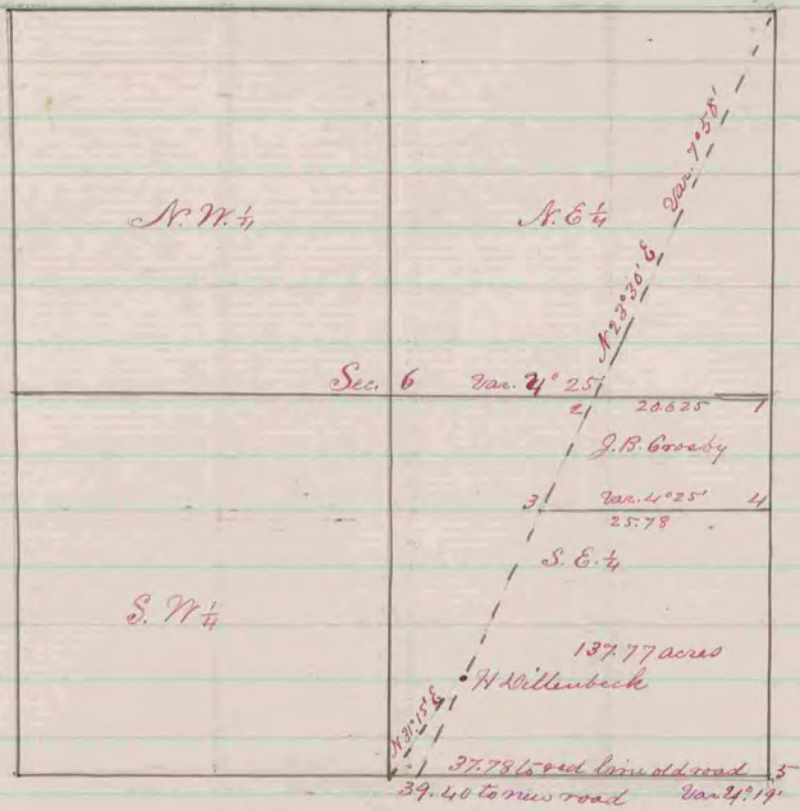 N. W. ¼
N. E ¼
Var. 7° 58'
N 23° 30' E
Sec. 6 Var. 4° 25'
2 20.625 1
J. B. Crosby
3 Var. 4° 25' 4
25.78
S. E. ¼
S. W ¼
137.77 acres
H Dillenbeck
N 31° 15' E
37.78 to red line old road 5
39.40 to new road Var 4° 19'